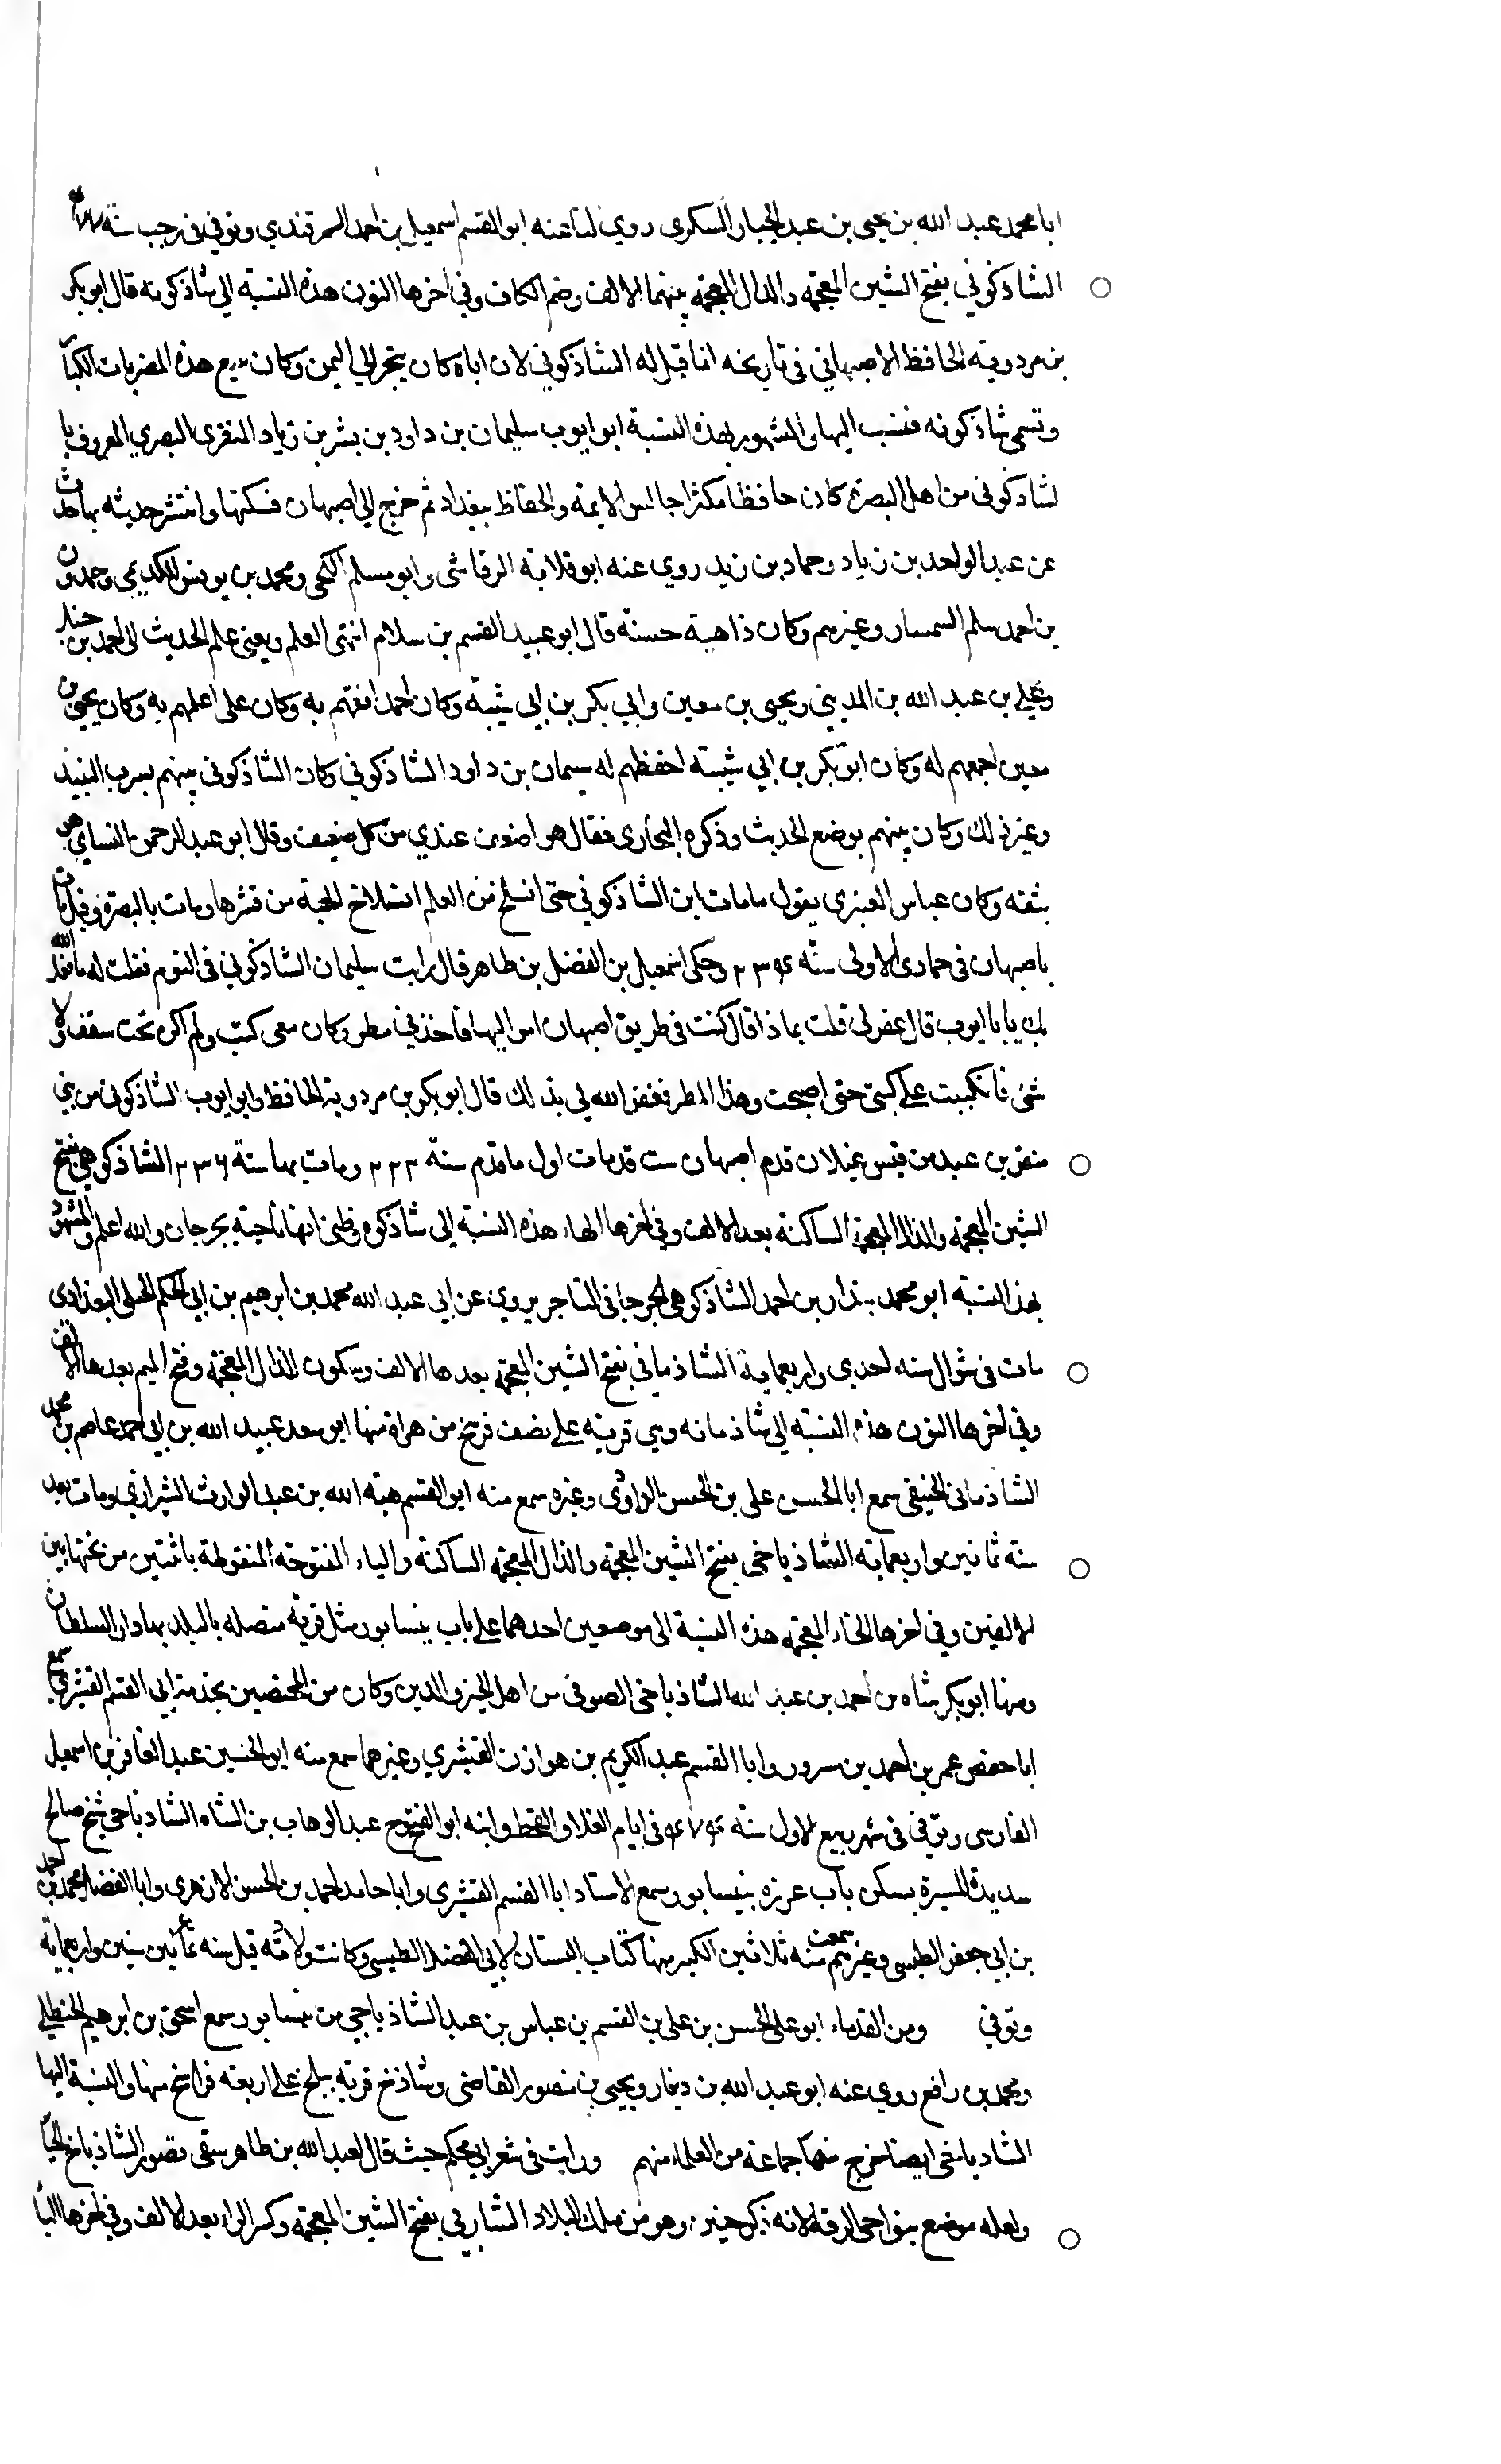 ابا محمد عبد الله بن يحيى بن عبد الجبار السكرى روي لنا عنه ابو القسم اسمعيل بن احمد السمرقندي وتوفي في رجب سنة
الشاذكوني بفتح الشين المعجمة والذال المعجمة بينهما الالف وضم الكاف وفي اخرها النون هذه النسبة الى شاذكونه قال ابو بكر
بن مردوية الحافظ الاصبهاني في تاريخه انما قيل له الشاذكوني لان اباه كان يتجر الى اليمن وكان يبيع هذه المضربات الكبار
وتسمى شاذكونه فنسب اليها والمشهور بهذه النسبة ابو ايوب سليمان بن داود بن بشر بن زياد المنقرى البصري المعروف با
لشاذكوني من اهل البصرة كان حافظا مكثرا جالس الايمة والحفاظ ببغداد ثم خرج الى اصبهان فسكنها وانتشر حديثه بها حدث
عن عبد الواحد بن زياد وحماد بن زيد روي عنه ابو قلابة الرقاشى وابو مسلم الكجى ومحمد بن يونس الكديمى وحمدون
بن احمد سلم السمسار وغيرهم وكان ذا هيبة حسنة قال ابو عبيد القسم بن سلام انتهى العلم ويعنى علم الحديث الى احمد بن حنبل
وعلي بن عبد الله بن المديني ويحيى بن معين وابي بكر بن ابى شيبة وكان احمد افقهم به وكان على اعلمهم به وكان يحيى بن
معين اجمعهم له وكان ابو بكر بن ابي شيبة احفظهم له سيمان بن داود الشاذكوني وكان الشاذكوني يتهم بسرب النبيذ
وغير ذلك وكان يتهم بوضع الحديث وذكره البخارى فقال هو اضعف عندي من كل ضعيف وقال ابو عبد الرحمن النساي هو
بثقه وكان عباس العنبرى يقول ما مات ابن الشاذكوني حتى انسلخ من العلم انسلاخ الحية من قشرها ومات بالبصرة وقيل مات
باصبهان في جمادى الاولى سنة ٢٣٤ وحكى اسمعيل بن الفضل بن طاهر قال رايت سليمان الشاذكوني في النوم فقلت له ما فعل الله
بك يابا ايوب قال غفر لى قلت بماذا قال كنت في طريق اصبهان امر اليها فاخذني مطر وكان معى كتب ولم اكن تحت سقف ولا
شى فانكببت على كتبى حتى اصبحت وهذا المطر فغفر الله لي بذلك قال ابو بكر بن مردوية الحافظ وابو ايوب الشاذكونى من بني
منقر بن عبيد بن قيس عيلان قدم اصبهان ست قدمات اول ما قدم سنة ٢٢٣ ومات بها سنة ٢٣٦ الشاذكوهى بفتح
الشين المعجمة والذال المعجمة الساكنة بعد الالف وفي اخرها الهاء هذه النسبة الى شاذكوه وظنى انها ناحية بجرجان والله اعلم والمشهور
بهذا النسبة ابو محمد بندار بن احمد الشاذكوهى الجرجاني التاجر يروي عن ابى عبد الله محمد بن ابرهيم بن ابي الحكم الختلى البغدادى
مات في شوال سنه احدى واربعماية الشاذماني بفتح الشين المعجمة بعدها الالف وسكون الذال المعجمة وفتح الميم بعدها الالف
وفي اخرها النون هذه النسبة الى شاذمانه وهى قرية على نصف فرسخ من هراة منها ابو سعد عبيد الله بن ابى احمد عاصم بن محمد
الشاذمانى الحنيفى سمع ابا الحسن على بن الحسن الداودى وغيره سمع منه ابو القسم هبة الله بن عبد الوارث الشيرازي ومات بعد
سنة ثمانين واربعماية الشاذياخى بفتح الشين المعجمة والذال المعجمة الساكنة والياء المفتوحه المنقوطة باثنتين من تحتها بين
الالفين وفي اخرها الخاء المعجمه هذه النسبة الى موضعين احدهما على باب نيسابور مثل قرية متصله بالبلد بها دار السلطان
ومنها ابو بكر شاه بن احمد بن عبد الله الشاذياخى الصوفى من اهل الخير والدين وكان من المختصين بخدمة ابى القسم القشيري سمع
ابا حفص عمر بن احمد بن مسرور وابا القسم عبد الكريم بن هوازن القشيري وغيرهما سمع منه ابو الحسين عبد الغافر بن اسمعيل
الفارسى وتوفي في شهر ربيع الاول سنة ٤٧٤ في ايام الغلا والقحط وابنه ابو الفتوح عبد الوهاب بن الشاه الشاذياخى شيخ صالح
سديد السيرة يسكن باب عزره بنيسابور سمع الاستاد ابا القسم القشيرى وابا حامد احمد بن الحسن الازهرى وابا الفضل محمد بن احمد
بن ابي جعفر الطبسى وغيرهم سمعت منه ثلاثين الكبير منها كتاب البستان لابي الفضل الطبسى وكانت ولادته قبل سنة ثمانين سنين واربعماية
وتوفي ومن القدماء ابو على الحسن بن على بن القسم بن عباس بن عبد الشاذياجى من نيسابور سمع اسحق بن ابرهيم الحنظلى
ومحمد بن رافع روي عنه ابو عبد الله بن دينار ويحيى بن منصور القاضى وشاذخ قرية ببلخ على اربعه فراسخ منها والنسبة اليها
الشاذياخى ايضا خرج منها جماعة من العلماء منهم ورايت فى شعر ابى محكم حيث قال لعبد الله بن طاهر سقى قصور الشاذياخ الحيا
ولعله موضع بنواحى الرقه لانه ذكر وهو من تلك البلاد الشاربي بفتح الشين المعجمة وكسر الراء بعد الالف وفي اخرها البا